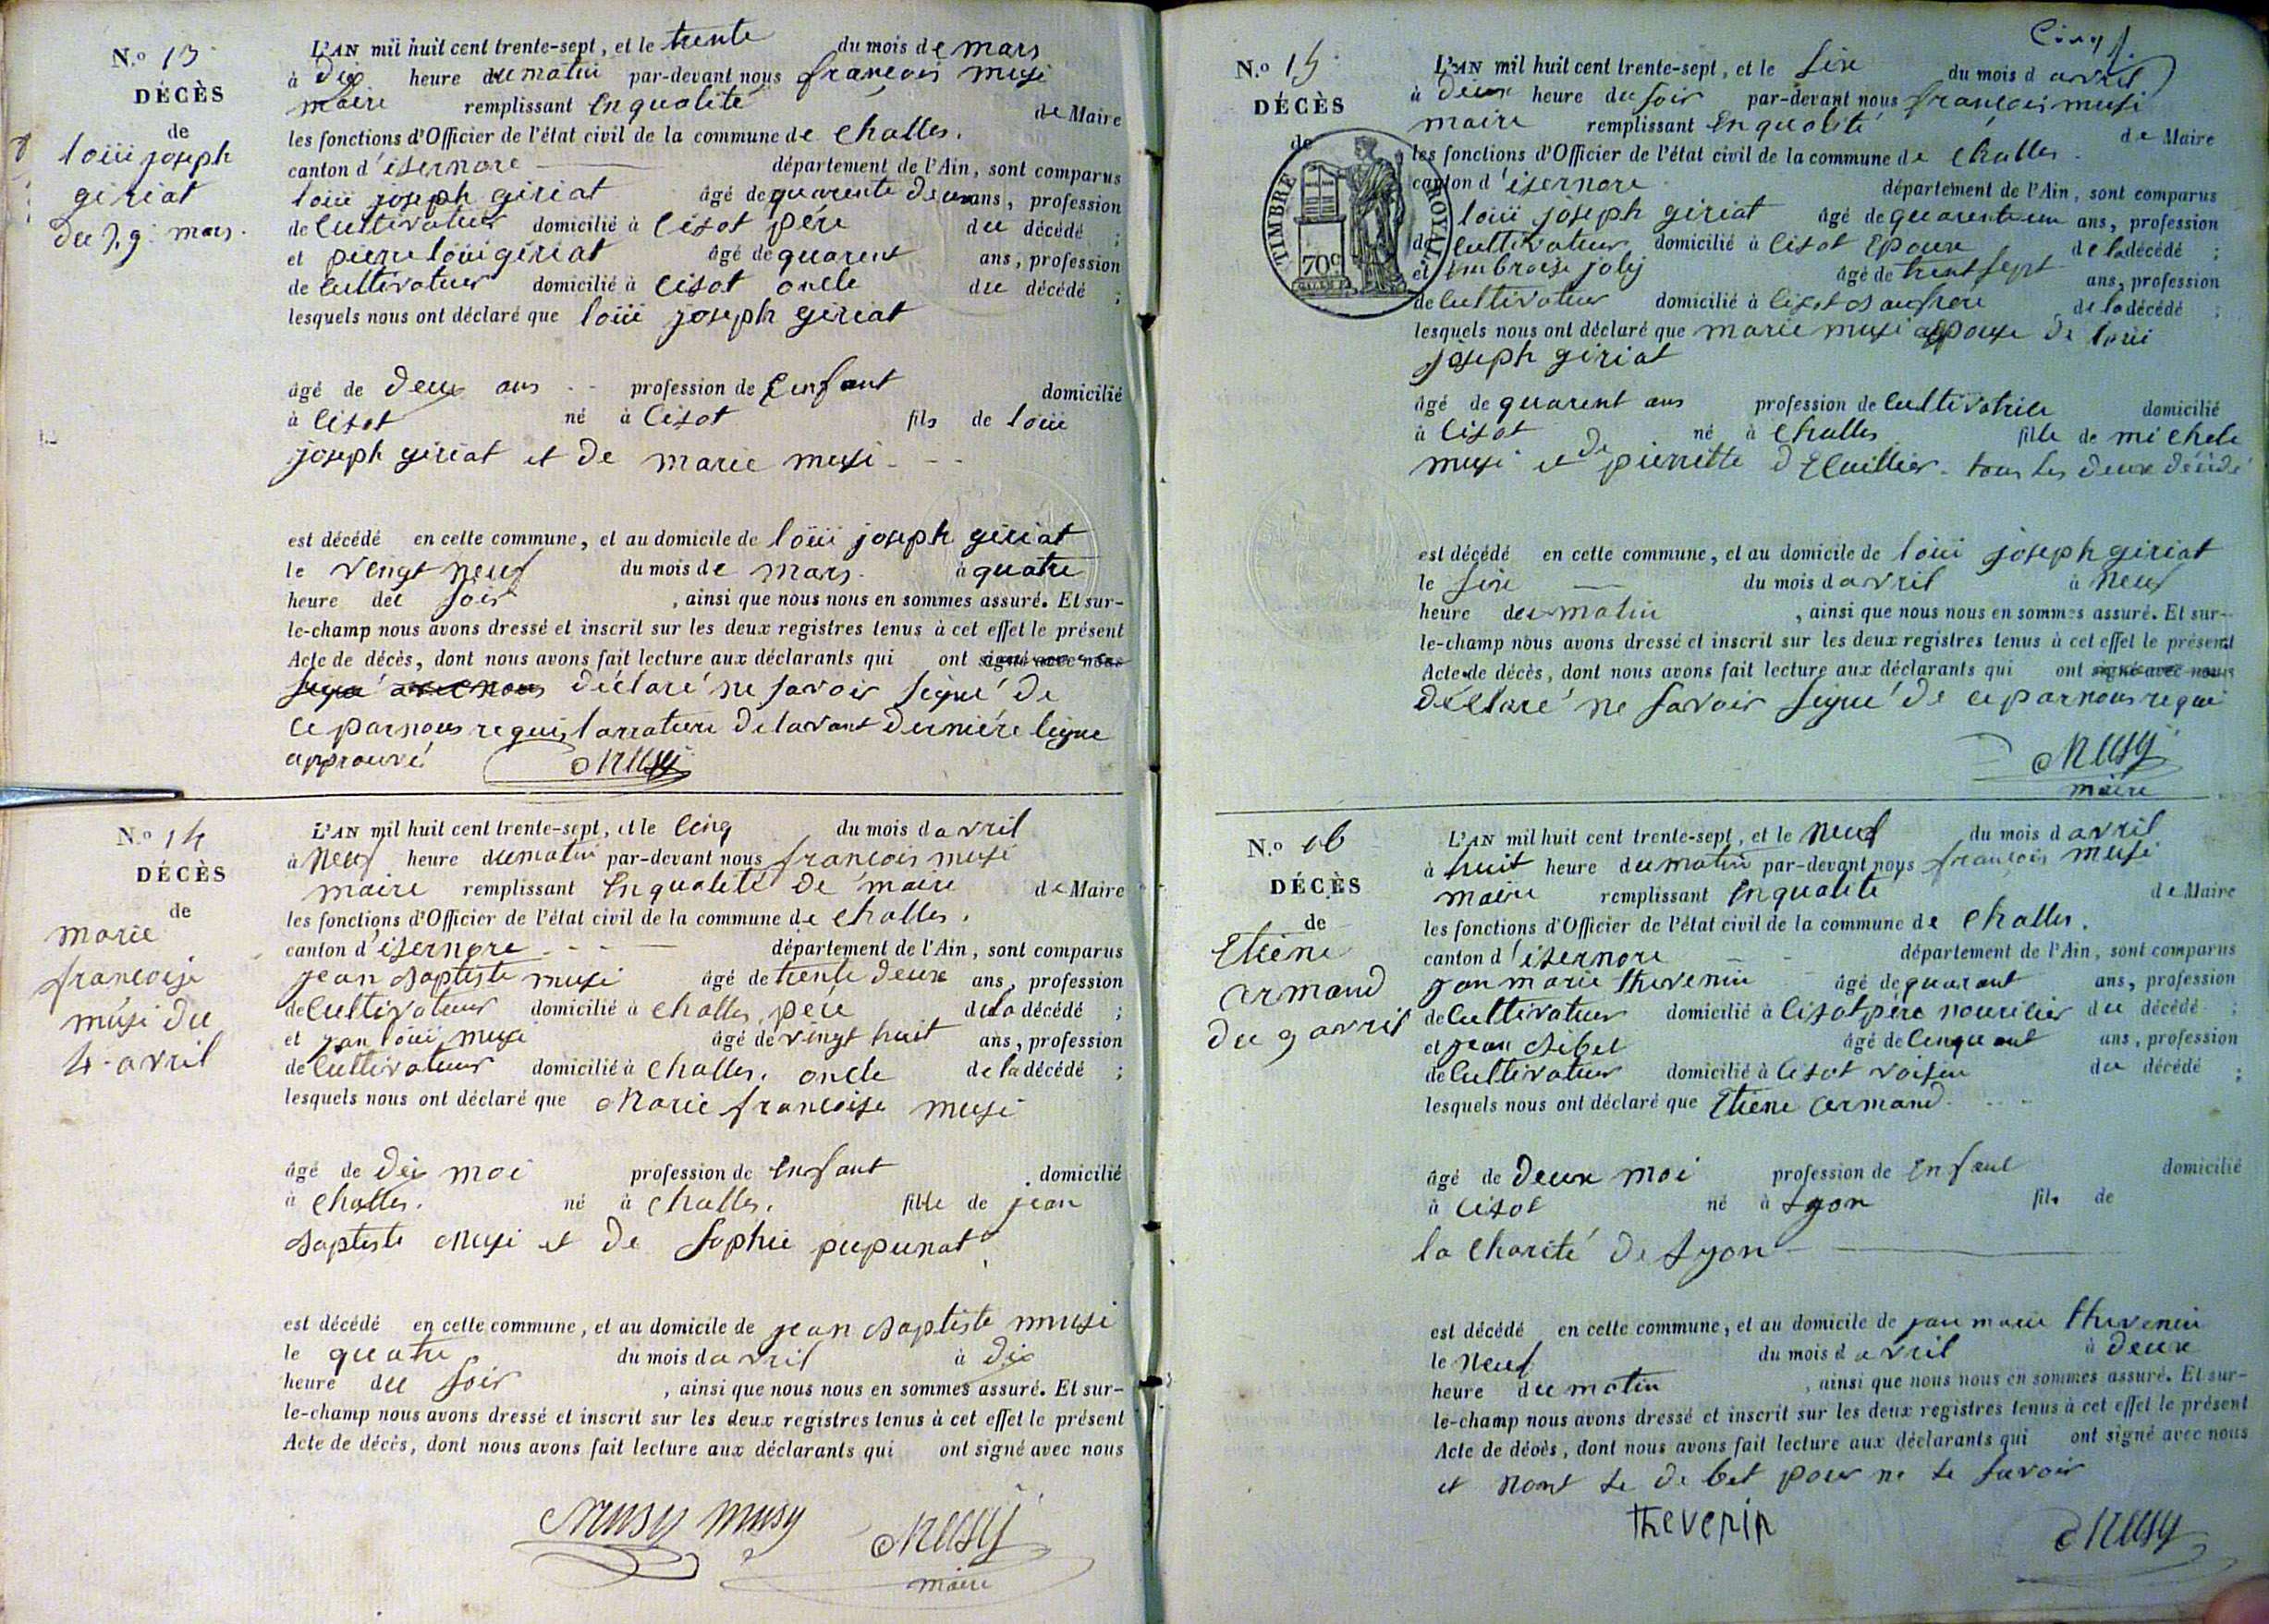 N.º 13
DÉCÈS
de
loüi joseph
giriat
du 29 mars.
L'AN mil huit cent trente-sept, et le trente du mois de mars
à dix heure du matin par-devant nous françois musi
maire remplissant en qualité de Maire
les fonctions d'Officier de l'état civil de la commune de challes.
canton d'isernore département de l'Ain, sont comparus
loüi joseph giriat âgé de quarente deux ans, profession
de cultivateur domicilié à cisot père du décédé ;
et pierre loüi giriat âgé de quarent ans, profession
de cultivateur domicilié à cisot oncle du décédé ;
lesquels nous ont déclaré que loüi joseph giriat
âgé de deux ans profession de enfant domicilié
à cisot né à cisot fils de loüi
joseph giriat et de marie musi
est décédé en cette commune, et au domicile de loüi joseph giriat
le vengt neuf du mois de mars. à quatre
heure du soir , ainsi que nous nous en sommes assuré. Et sur-
le-champ nous avons dressé et inscrit sur les deux registres tenus à cet effet le présent
Acte de décès, dont nous avons fait lecture aux déclarants qui ont signé avec nous
signé avec nous déclaré ne savoir signé de
ce par nous requi larrature de lavant dernière ligne
approuvé Musy
N.º 14
DÉCÈS
de
marie
francoise
musi du
4 avril
L'AN mil huit cent trente-sept, et le cinq du mois d avril
à neuf heure du matin par-devant nous françois musi
maire remplissant en qualité de maire de Maire
les fonctions d'Officier de l'état civil de la commune de challes.
canton d'isernore département de l'Ain, sont comparus
jean baptiste musi âgé de trente deux ans, profession
de cultivateur domicilié à challes père de la décédé ;
et jan loüi musi âgé de vingt huit ans, profession
de cultivateur domicilié à challes. oncle de la décédé ;
lesquels nous ont déclaré que Marie francoise musi
âgé de dix moi profession de enfant domicilié
à challes. né à challes. fille de jean
baptiste musi et de sophie pupunat
est décédé en cette commune, et au domicile de jean baptiste musi
le quatre du mois d avril à dix
heure du soir , ainsi que nous nous en sommes assuré. Et sur-
le-champ nous avons dressé et inscrit sur les deux registres tenus à cet effet le présent
Acte de décès, dont nous avons fait lecture aux déclarants qui ont signé avec nous
Musy musy Musy
maire
Cinq
N.º 15
DÉCÈS
de
TIMBRE ROYAL
70c
L'AN mil huit cent trente-sept, et le sixe du mois d avril
à deux heure du soir par-devant nous françois musi
maire remplissant en qualité de Maire
les fonctions d'Officier de l'état civil de la commune de challes.
canton d'isernore département de l'Ain, sont comparus
loüi joseph giriat âgé de quarente un ans, profession
de cultivateur domicilié à cisot epoux de la décédé ;
et Ambroise joly âgé de trent sept ans, profession
de cultivateur domicilié à cisot baufrere de la décédé ;
lesquels nous ont déclaré que marie musi epouse de loüi
joseph giriat
âgé de quarent ans profession de cultivatrice domicilié
à cisot né à challes fille de michele
musi et de pierrette tous les deux décédé
est décédé en cette commune, et au domicile de loüi joseph giriat
le sixe du mois d avril à neuf
heure du matin , ainsi que nous nous en sommes assuré. Et sur-
le-champ nous avons dressé et inscrit sur les deux registres tenus à cet effet le présent
Acte de décès, dont nous avons fait lecture aux déclarants qui ont signé avec nous
déclaré ne savoir signé de ce par nous requi
Musy
maire
N.º 16
DÉCÈS
de
Etiene
armand
du 9 avril
L'AN mil huit cent trente-sept, et le neuf du mois d avril
à huit heure du matin par-devant nous françois musi
maire remplissant en qualité de Maire
les fonctions d'Officier de l'état civil de la commune de challes.
canton d'isernore département de l'Ain, sont comparus
jan marie thevenin âgé de quarant ans, profession
de cultivateur domicilié à cisot père nouricier du décédé ;
et jean Bibet âgé de cinquant ans, profession
de cultivateur domicilié à cisot voisin du décédé ;
lesquels nous ont déclaré que Etiene armand
âgé de deux moi profession de enfant domicilié
à cisot né à Lyon fils de
la charité de Lyon
est décédé en cette commune, et au domicile de jan marie thevenin
le neuf du mois d avril à deux
heure du matin , ainsi que nous nous en sommes assuré. Et sur-
le-champ nous avons dressé et inscrit sur les deux registres tenus à cet effet le présent
Acte de décès, dont nous avons fait lecture aux déclarants qui ont signé avec nous
et nont le de bet pour ne le savoir
thevenin Musy